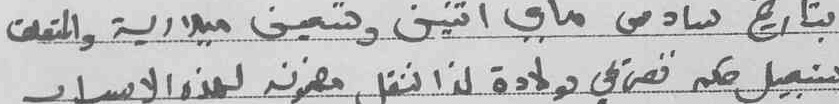 بتاريخ سادس ماي اثنين وتسعين ميلادية والمتعلق
بتسجيل حكم تصريحي بولادة لذا ننقل مضمونه لهذه الاسباب